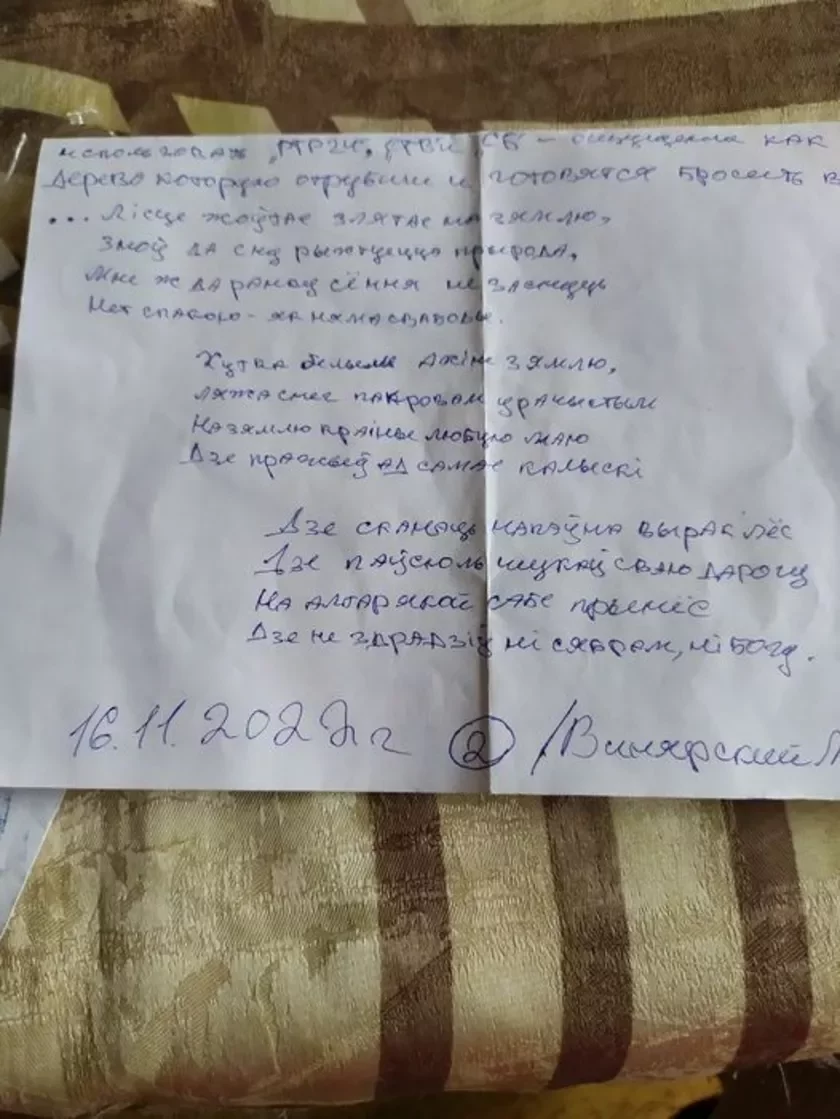 использовал - ощущения как
дерево которую отрубили и готовятся бросать в
... Лісце жоўтае злятае на зямлю,
Зноў да сну рыхтуецца прырода,
Мне ж да раноц сёння не заснуць
Нет спакою - як няма свабоды.
Хутка белым акіне зямлю,
Ляжа снег пакровам урачыстым
На зямлю краіны любую маю
Дзе пражыў ад самае калыскі
Дзе сканаць напэўна выпаў лёс
Дзе паўсюль шукаў сваю дарогу
На алтар якой сябе прынёс
Дзе не здрадзіў ні сябрам, ні Богу.
16.11.2022г 2 /Винярский